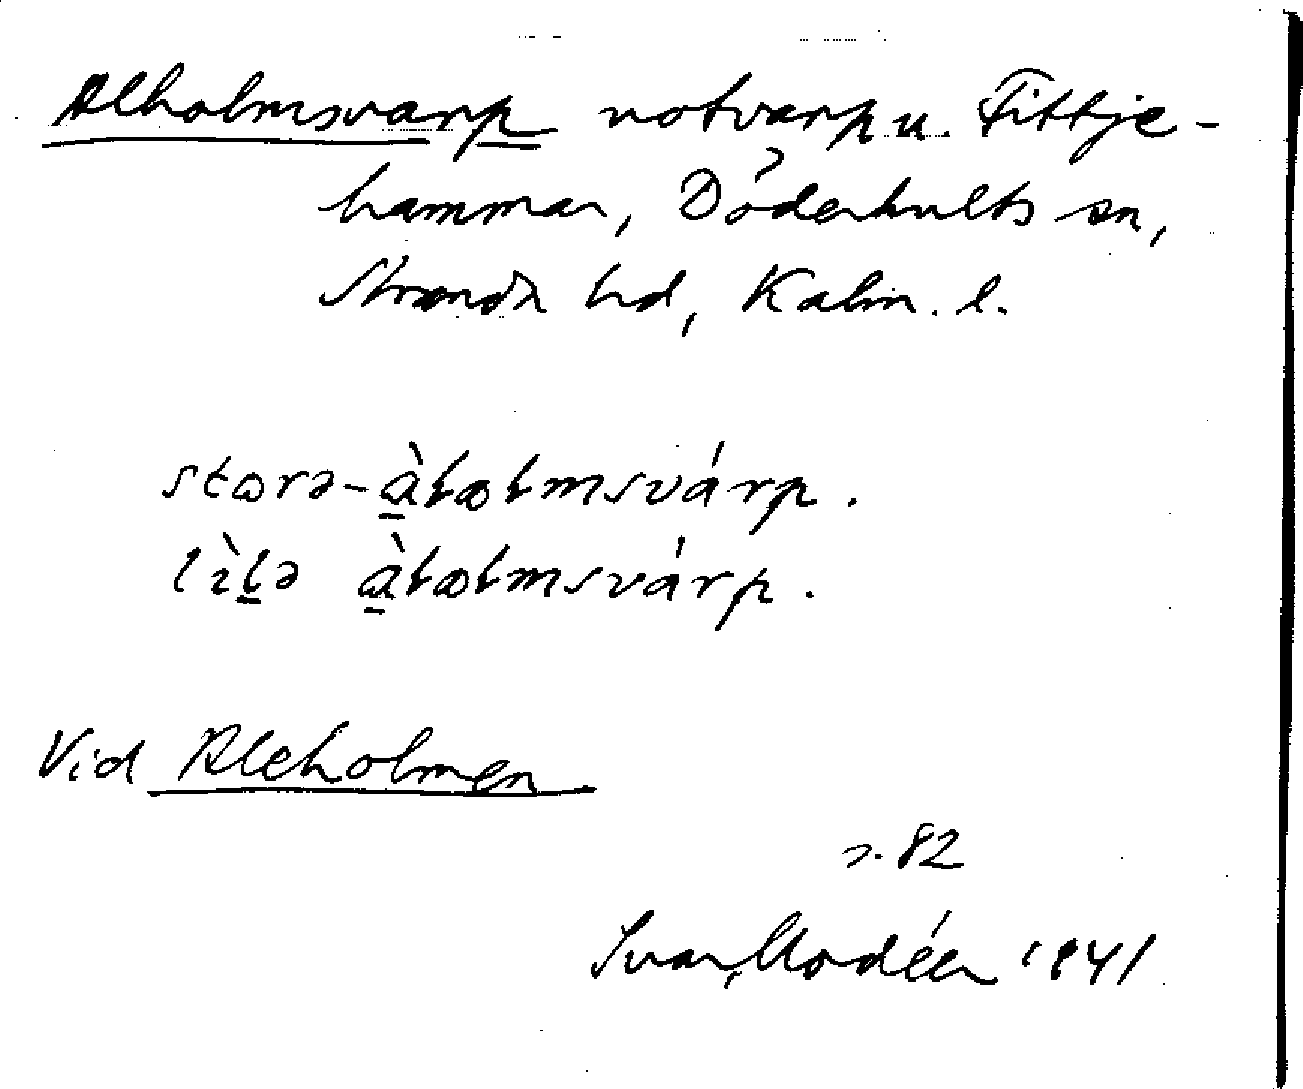 Alholmsvarp notvarp u. Fittje-
hammar, Döderhults sn,
Stranda hd, Kalm. l.
storə-àłołmsvárp.
lìłə àłołmsvárp.
Vid Aleholmen
s. 82
Ivar Modéer 1941